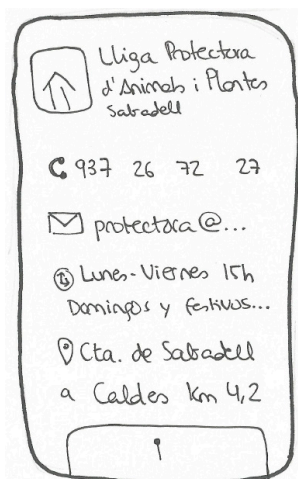 Lliga Protectora
d'Animals i Plantes
Sabadell
937 26 72 27
protectora@...
Lunes-Viernes 15h
Domingos y festivos...
Cta. de Sabadell
a Caldes Km 4,2